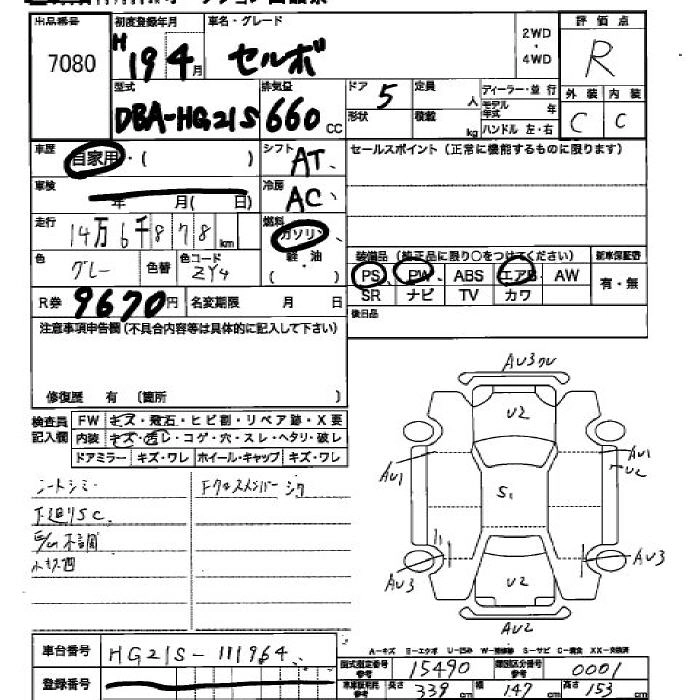 出品番号 初度登録年月 車名・グレード 評価点
7080 H 19 4月 セルボ 2WD・4WD R
型式 排気量 ドア 定員 ディーラー・並行 外装 内装
DBA-HG21S 660cc 5 人 モデル年式 年 C C
形状 積載 kg ハンドル 左・右
車歴 自家用・( ) シフト AT セールスポイント(正常に機能するものに限ります)
車検 年 月( 日) 冷房 AC
走行 14万6千878km 燃料 ガソリン
軽・油
( )
色 グレー 色替 色コード ZY4
装備品(純正品に限り○をつけてください) 新車保証書
PS PW ABS エアB AW 有・無
SR ナビ TV カワ
R券 9670円 名変期限 月 日 後日品
注意事項申告欄(不具合内容等は具体的に記入して下さい)
修復歴 有 〔箇所 〕
検査員記入欄 FW キズ・飛石・ヒビ割・リペア跡・X要
内装 キズ・汚レ・コゲ・穴・スレ・ヘタリ・破レ
ドアミラー キズ・ワレ ホイール・キャップ キズ・ワレ
シートシミ
下廻りSC
AV3 UV
U2
AV1
AV1
U2
S1
AV3
AV3
U2
AV2
A-キズ E-エクボ U-凹み W-補修跡 S-サビ C-腐食 XX-交換済
車台番号 HG21S-111964
登録番号
型式指定番号 参考 15490 類別区分番号 参考 0001
長さ 339 cm 幅 147 cm 高さ 153 cm